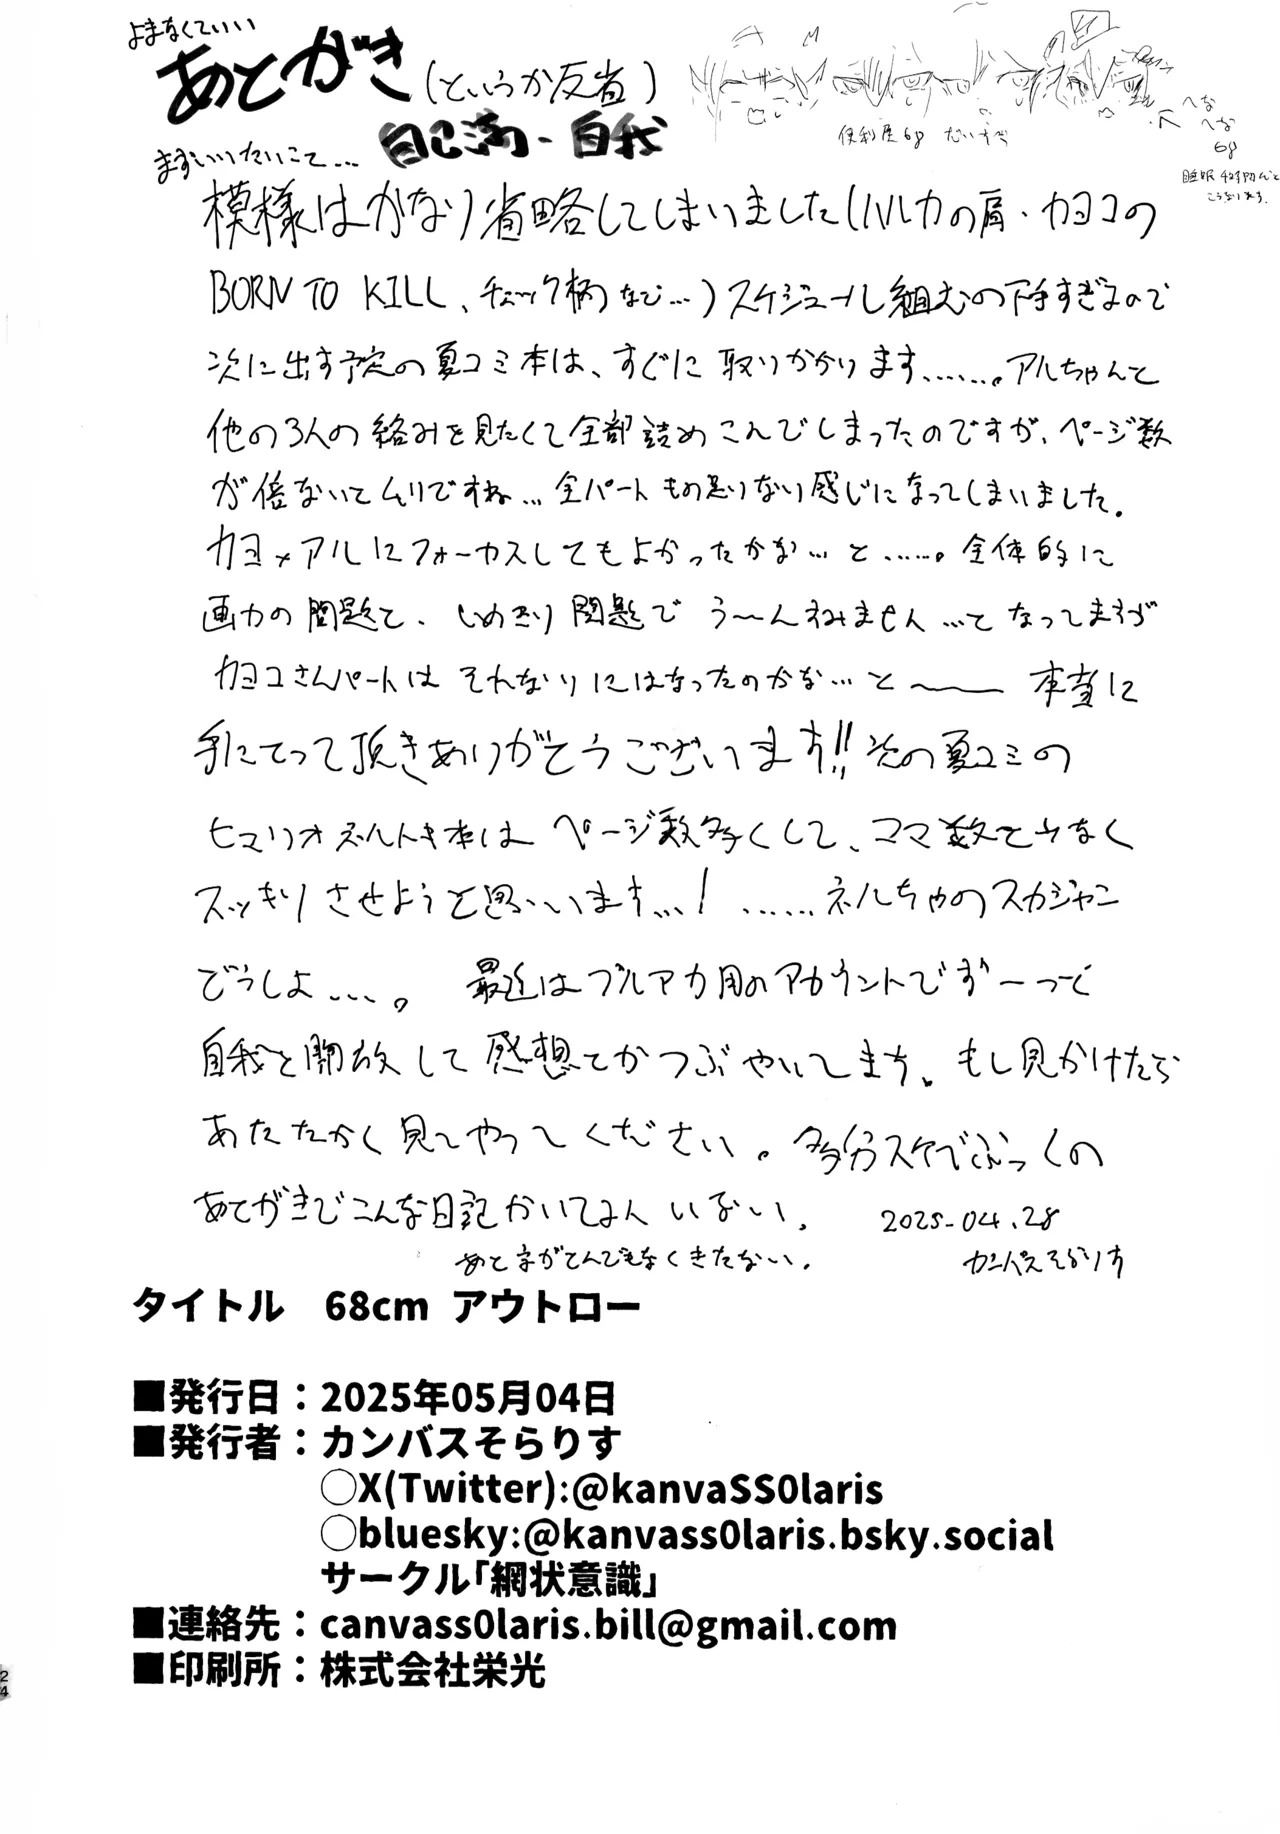 よまなくていい
あとがき(というか反省)
自己満-自我
便利屋68 だいすき
へな
へな
68
まずいいたいこと…
模様はかなり省略してしまいました(ハルカの肩・カヨコの
BORN TO KILL、チェック柄など…)スケジュール組むの下手すぎるので
次に出す予定の夏コミ本は、すぐに取りかかります……。アルちゃんと
他の3人の絡みを見たくて全部詰めこんでしまったのですが、ページ数
が倍ないとムリですね…全パートもの足りない感じになってしまいました。
カヨ×アルにフォーカスしてもよかったかな…と……。全体的に
画力の問題と、しめきり問題でう〜んすみません…となってますが
カヨコさんパートはそれなりにはなったのかな…と〜 本当に
手にとって頂きありがとうございます!!次の夏コミの
ヒマリオネルトキ本はページ数多くして、コマ数を少なく
スッキリさせようと思います…!……ネルちゃのスカジャン
どうしよ…。最近はブルアカ用のアカウントでずーっと
自我を開放して感想とかつぶやいてます。もし見かけたら
あたたかく見てやってください。多分スケベぶっくの
あとがきでこんな日記かいてる人いない。 2025-04.28
あと字がとんでもなくきたない。 カンバスそらりす
タイトル 68cm アウトロー
■発行日:2025年05月04日
■発行者:カンバスそらりす
○X(Twitter):@kanvaSS0laris
○bluesky:@kanvass0laris.bsky.social
サークル「網状意識」
■連絡先:canvass0laris.bill@gmail.com
■印刷所:株式会社栄光
24